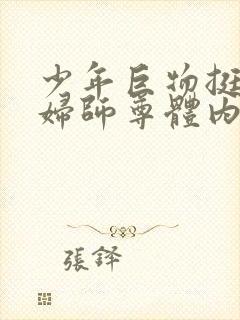 少年巨物挺
婦師尊體內
張鐸